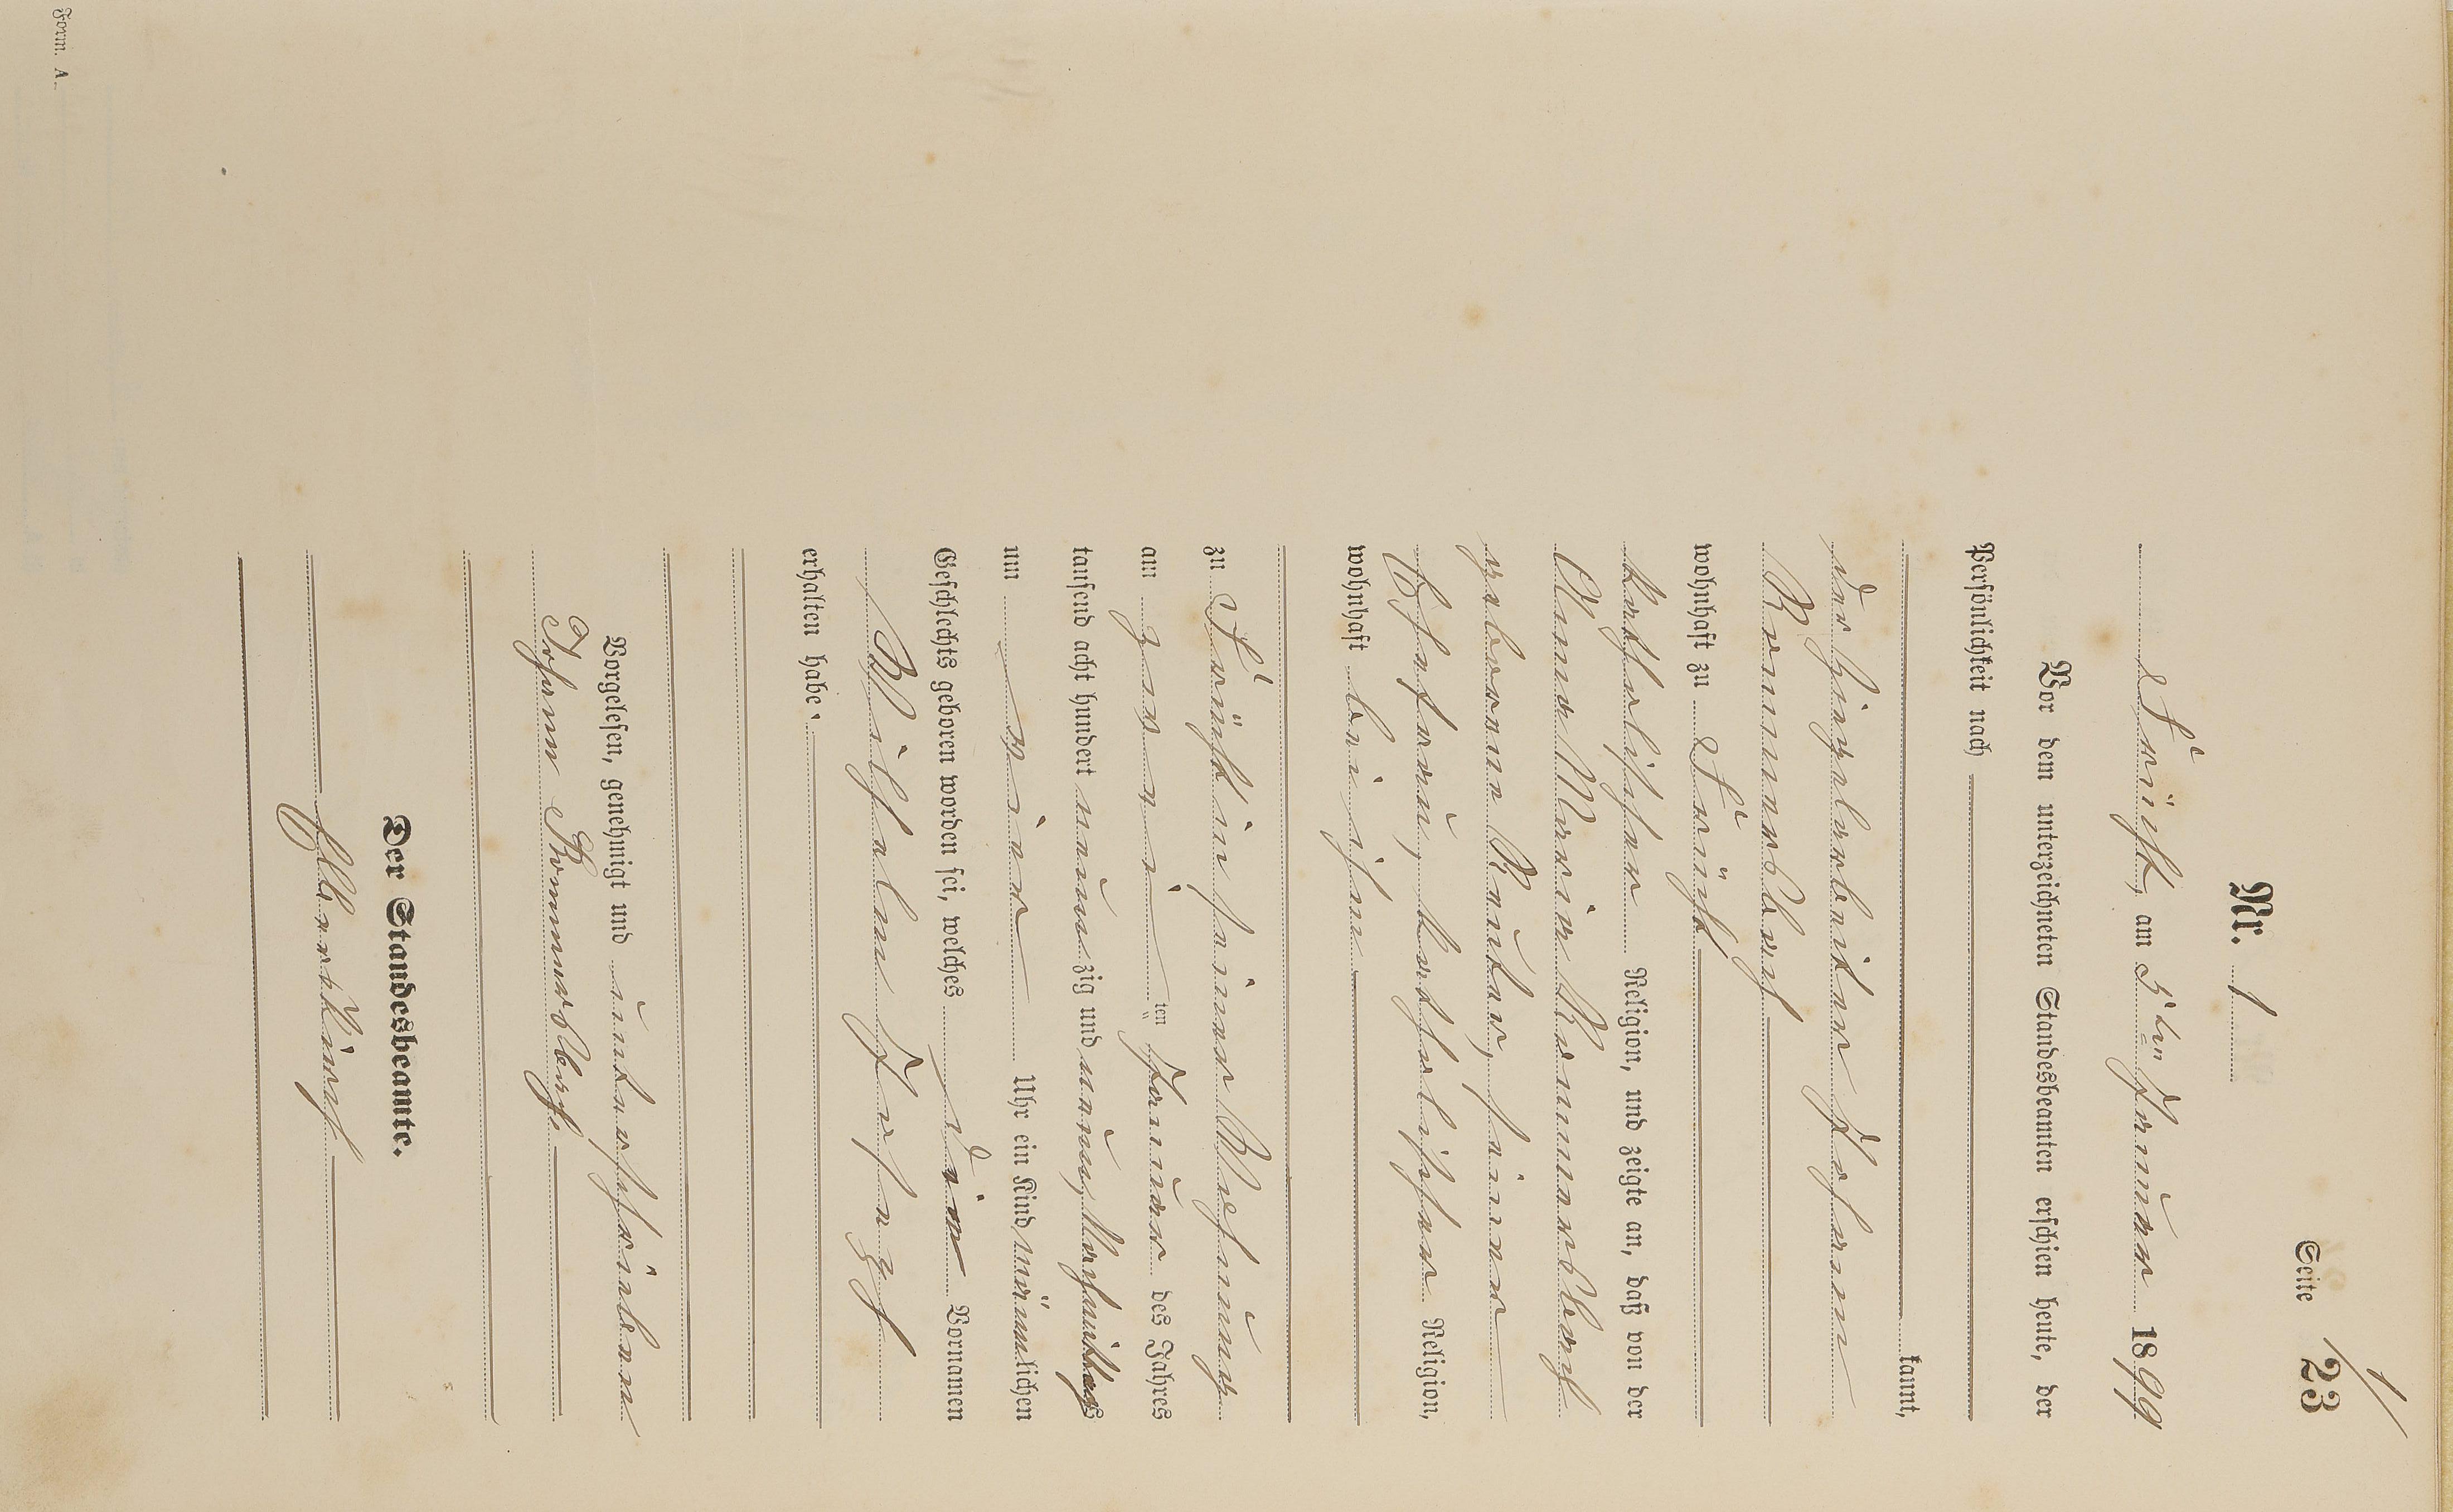 Seite 23
1
Nr. 1
Frücht, am 5ten Januar 1899
Vor dem unterzeichneten Standesbeamten erschien heute, der
Persönlichkeit nach
kannt,
der Ziegelarbeiter Johann
Rommersbach
wohnhaft zu Frücht
katholischer Religion, und zeigte an, daß von der
Anna Maria Rommersbach
geborene Reuter, seiner
Ehefrau, katholischer Religion,
wohnhaft bei ihm
zu Frücht in seiner Wohnung
am zwei ten Januar des Jahres
tausend acht hundert neun zig und neun, Nachmittags
um vier Uhr ein Kind männlichen
Geschlechts geboren worden sei, welches die Vornamen
Wilhelm Joseph
erhalten habe.
Vorgelesen, genehmigt und unterschrieben
Johann Rommersbach.
Der Standesbeamte.
Form. A.